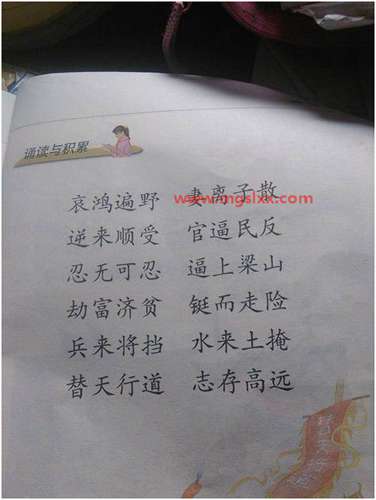 诵读与积累
哀鸿遍野 妻离子散
www.mgslxx.com
逆来顺受 官逼民反
忍无可忍 逼上梁山
劫富济贫 铤而走险
兵来将挡 水来土掩
替天行道 志存高远